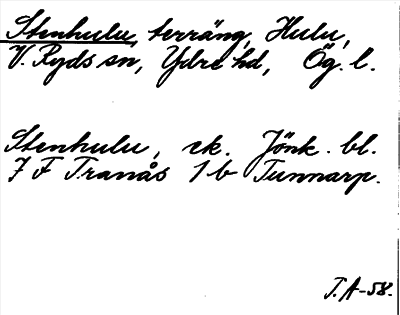 Stenhulu, terräng, Hulu,
V. Ryds sn, Ydre hd, Ög. l.
Stenhulu, ek. Jönk. bl.
7 F Tranås 1 b Tunnarp.
T. A-58.